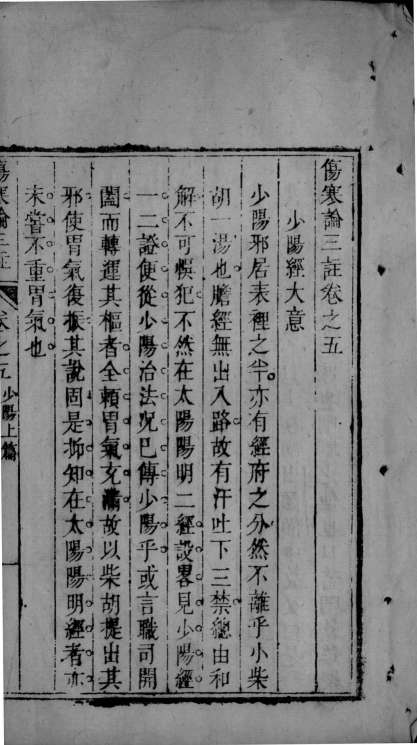 傷寒論三註卷之五
少陽經大意
少陽邪居表裡之半亦有經府之分然不離乎小柴
胡一湯也膽經無出入路故有汗吐下三禁總由和
解不可悞犯不然在太陽陽明二經設畧見少陽經
一二證便從少陽治法况已傳少陽乎或言職司開
闔而轉運其樞者全賴胃氣充滿故以柴胡提出其
邪使胃氣復振其說固是抑知在太陽陽明經者亦
未嘗不重胃氣也
傷寒論三註 卷之五 少陽上篇